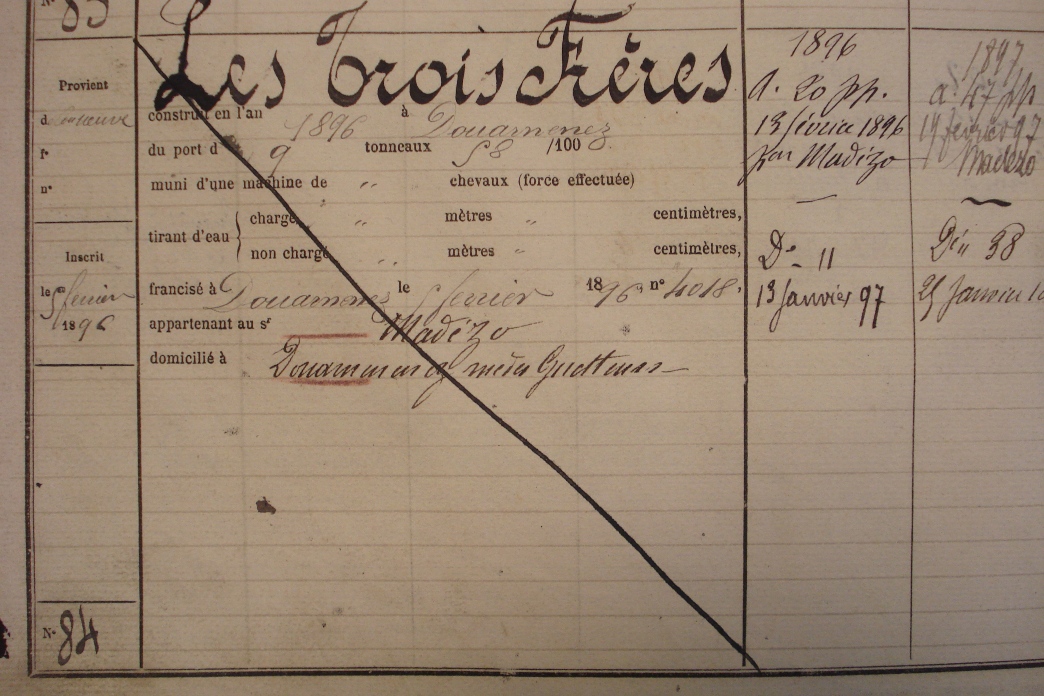 83
Les Trois Frères
Provient
d neuve
fº
nº
construit en l'an 1896 à Douarnenez
du port d 9 tonneaux 58 /100
muni d'une machine de " chevaux (force effectuée)
tirant d'eau { chargé " mètres " centimètres,
non chargé " mètres " centimètres,
Inscrit
le février
1896
francisé à Douarnenez le février 1896 nº 4018.
appartenant au sr Madézo
domicilié à Douarnenez
Nº 84
1896
a. 20 pp.
13 février 1896
par Madézo
Dº 11
13 Janvier 97
1897
a. 47 pp
19 février 97
Madezo
38
Janvier